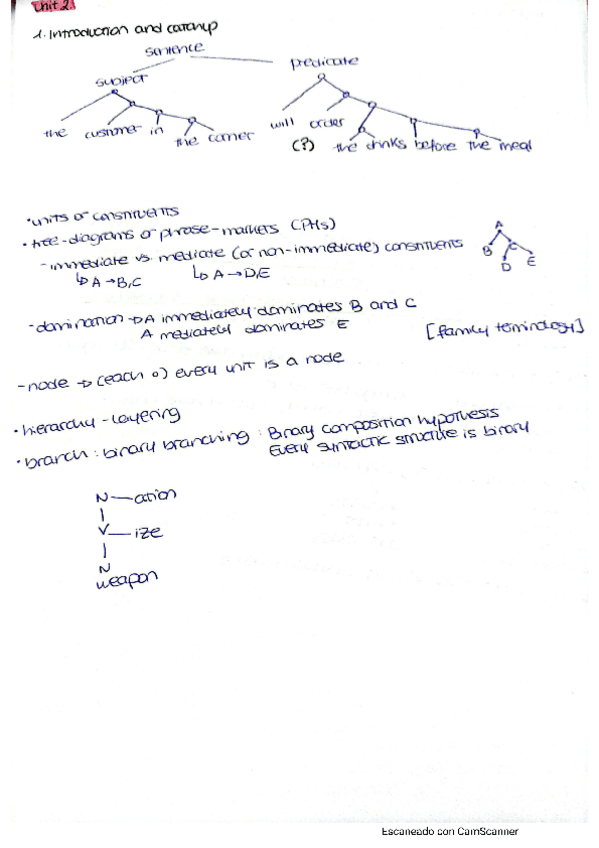 Unit 2.
1. Introduction and catchup
sentence
predicate
subject
the customer in the corner
will order
(?) the drinks before the meal
• units or constituents
• tree-diagrams or phrase-markers (PMs)
- immediate vs. mediate (or non-immediate) constituents
↳ A → B, C ↳ A → D, E
A
B C
D E
- domination → A immediately dominates B and C
A mediately dominates E
[family terminology]
- node → (each o) every unit is a node
• hierarchy - layering
• branch: binary branching: Binary composition hypothesis
Every syntactic structure is binary
N — ation
V — ize
N
weapon
Escaneado con CamScanner